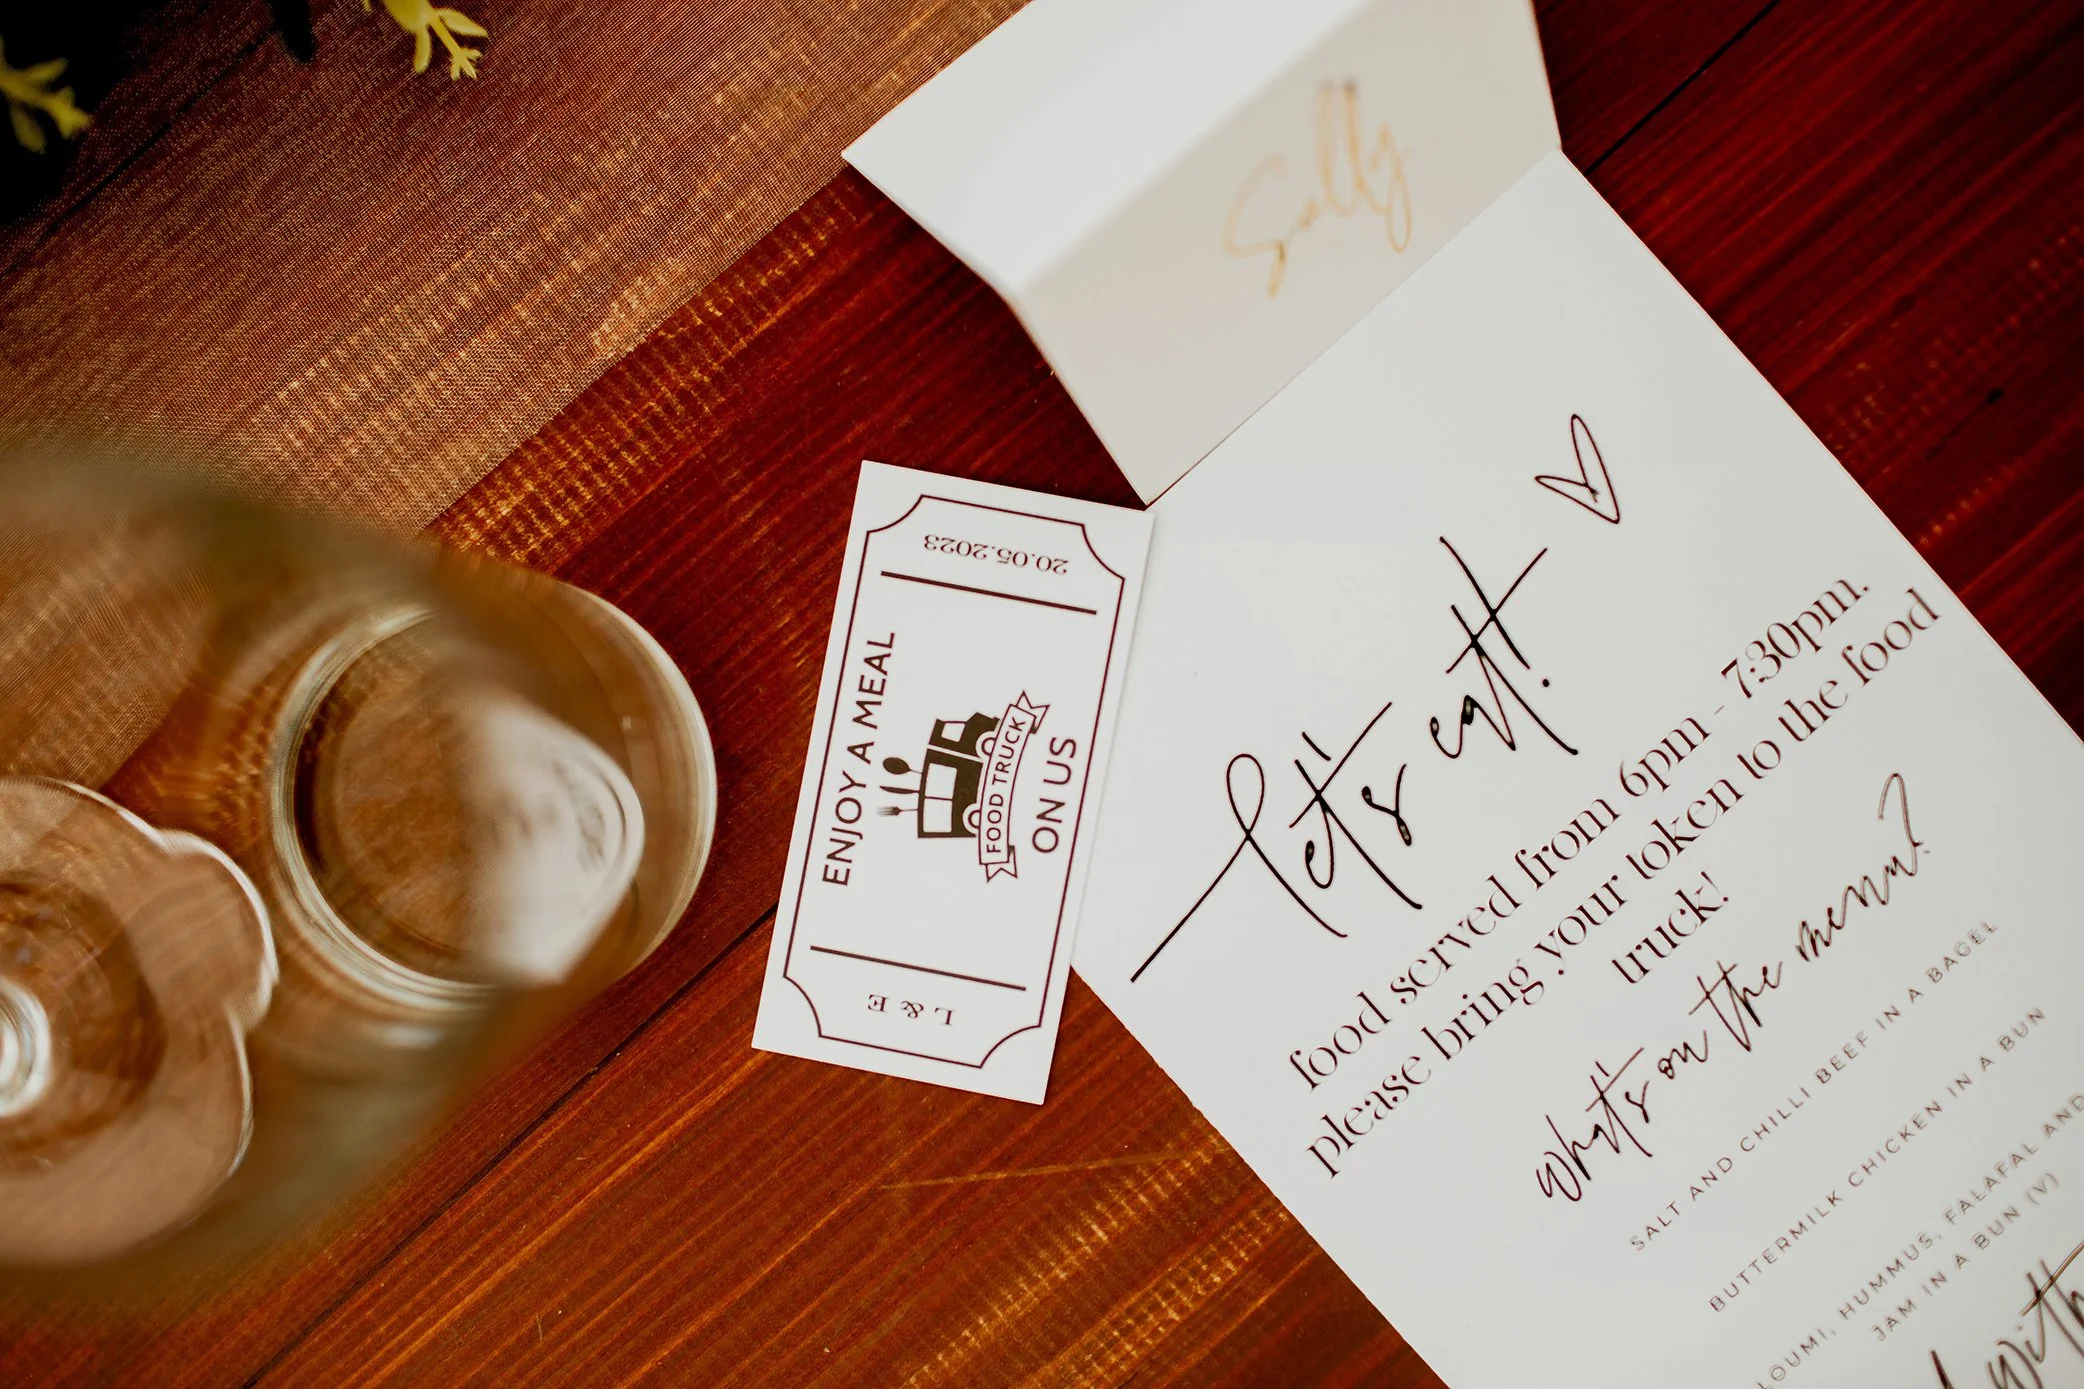 Sally
let's eat!
food served from 6pm - 7:30pm.
please bring your token to the food
truck!
what's on the menu?
SALT AND CHILLI BEEF IN A BAGEL
BUTTERMILK CHICKEN IN A BUN
LOUMI, HUMMUS, FALAFAL AND
JAM IN A BUN (V)
with
20.05.2023
ENJOY A MEAL
FOOD TRUCK
ON US
L & E